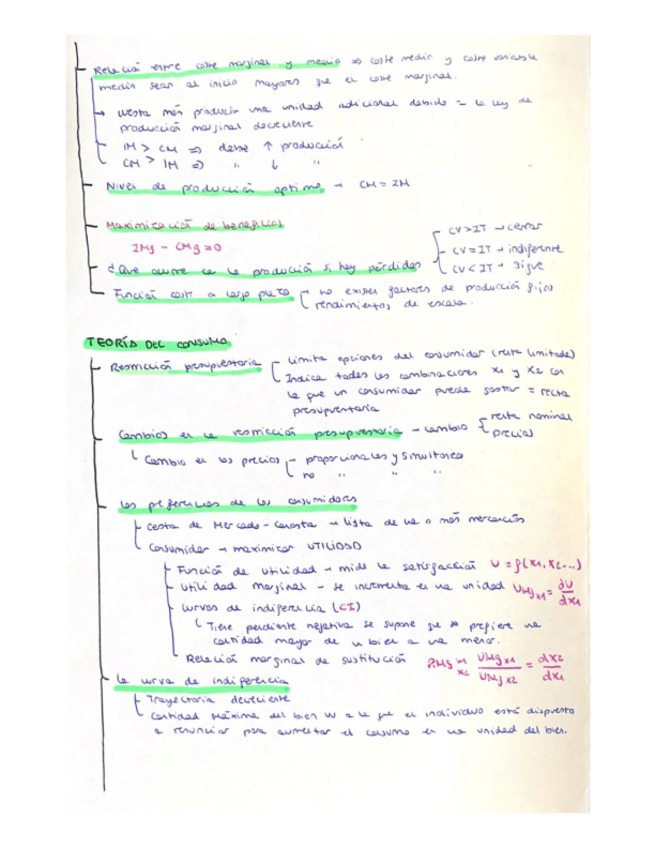 Relación entre coste marginal y medio ⇒ coste medio y coste variable
medio sean al inicio mayores que el coste marginal.
→ cuesta más producir una unidad adicional debido a la ley de
producción marginal decreciente
IM > CM ⇒ debe ↑ producción
CM > IM ⇒ " ↓ "
Nivel de producción óptimo → CM = IM
Maximización de beneficios
IMg - CMg = 0
¿Que ocurre con la producción si hay pérdidas
CV>IT → cerrar
CV=IT → indiferente
CV<IT → sigue
Función coste a largo plazo
→ no existen factores de producción fijos
rendimientos de escala.
TEORÍA DEL CONSUMO
Restricción presupuestaria
Limita opciones del consumidor (renta limitada)
Indica todas las combinaciones x1 y x2 con
la que un consumidor puede gastar = recta
presupuestaria
Cambios en la restricción presupuestaria → cambio
renta nominal
precios
Cambio en los precios
→ proporcionales y simultáneo
no " " "
Las preferencias de los consumidores
Cesta de Mercado - Canasta → lista de una o más mercancías
Consumidor → maximizar UTILIDAD
Función de utilidad → mide la satisfacción U = f(x1, x2...)
Utilidad marginal → se incrementa en una unidad UMgx1 = dU/dx1
Curvas de indiferencia (CI)
Tiene pendiente negativa se supone que se prefiere una
cantidad mayor de un bien a una menor.
Relación marginal de sustitución RMS x1 x2 UMgx1/UMgx2 = dx2/dx1
La curva de indiferencia
Trayectoria decreciente
Cantidad máxima del bien a la que el individuo está dispuesto
a renunciar para aumentar el consumo en una unidad del bien.